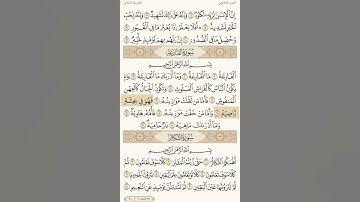 إِنَّ ٱلْإِنسَٰنَ لِرَبِّهِۦ لَكَنُودٌ ٦ وَإِنَّهُۥ عَلَىٰ ذَٰلِكَ لَشَهِيدٌ ٧ وَإِنَّهُۥ لِحُبِّ
ٱلْخَيْرِ لَشَدِيدٌ ٨ ۞ أَفَلَا يَعْلَمُ إِذَا بُعْثِرَ مَا فِى ٱلْقُبُورِ ٩
وَحُصِّلَ مَا فِى ٱلصُّدُورِ ١٠ إِنَّ رَبَّهُم بِهِمْ يَوْمَئِذٍ لَّخَبِيرٌۢ ١١
سُورَةُ القَارِعَةِ
بِسْمِ ٱللَّهِ ٱلرَّحْمَٰنِ ٱلرَّحِيمِ
ٱلْقَارِعَةُ ١ مَا ٱلْقَارِعَةُ ٢ وَمَآ أَدْرَىٰكَ مَا ٱلْقَارِعَةُ ٣ يَوْمَ
يَكُونُ ٱلنَّاسُ كَٱلْفَرَاشِ ٱلْمَبْثُوثِ ٤ وَتَكُونُ ٱلْجِبَالُ كَٱلْعِهْنِ
ٱلْمَنفُوشِ ٥ فَأَمَّا مَن ثَقُلَتْ مَوَٰزِينُهُۥ ٦ فَهُوَ فِى عِيشَةٍ
رَّاضِيَةٍ ٧ وَأَمَّا مَنْ خَفَّتْ مَوَٰزِينُهُۥ ٨ فَأُمُّهُۥ هَاوِيَةٌ ٩
وَمَآ أَدْرَىٰكَ مَا هِيَهْ ١٠ نَارٌ حَامِيَةٌۢ ١١
سُورَةُ التَّكَاثُرِ
بِسْمِ ٱللَّهِ ٱلرَّحْمَٰنِ ٱلرَّحِيمِ
أَلْهَىٰكُمُ ٱلتَّكَاثُرُ ١ حَتَّىٰ زُرْتُمُ ٱلْمَقَابِرَ ٢ كَلَّا سَوْفَ تَعْلَمُونَ ٣ ثُمَّ
كَلَّا سَوْفَ تَعْلَمُونَ ٤ كَلَّا لَوْ تَعْلَمُونَ عِلْمَ ٱلْيَقِينِ ٥ لَتَرَوُنَّ ٱلْجَحِيمَ
٦ ثُمَّ لَتَرَوُنَّهَا عَيْنَ ٱلْيَقِينِ ٧ ثُمَّ لَتُسْـَٔلُنَّ يَوْمَئِذٍ عَنِ ٱلنَّعِيمِ ٨